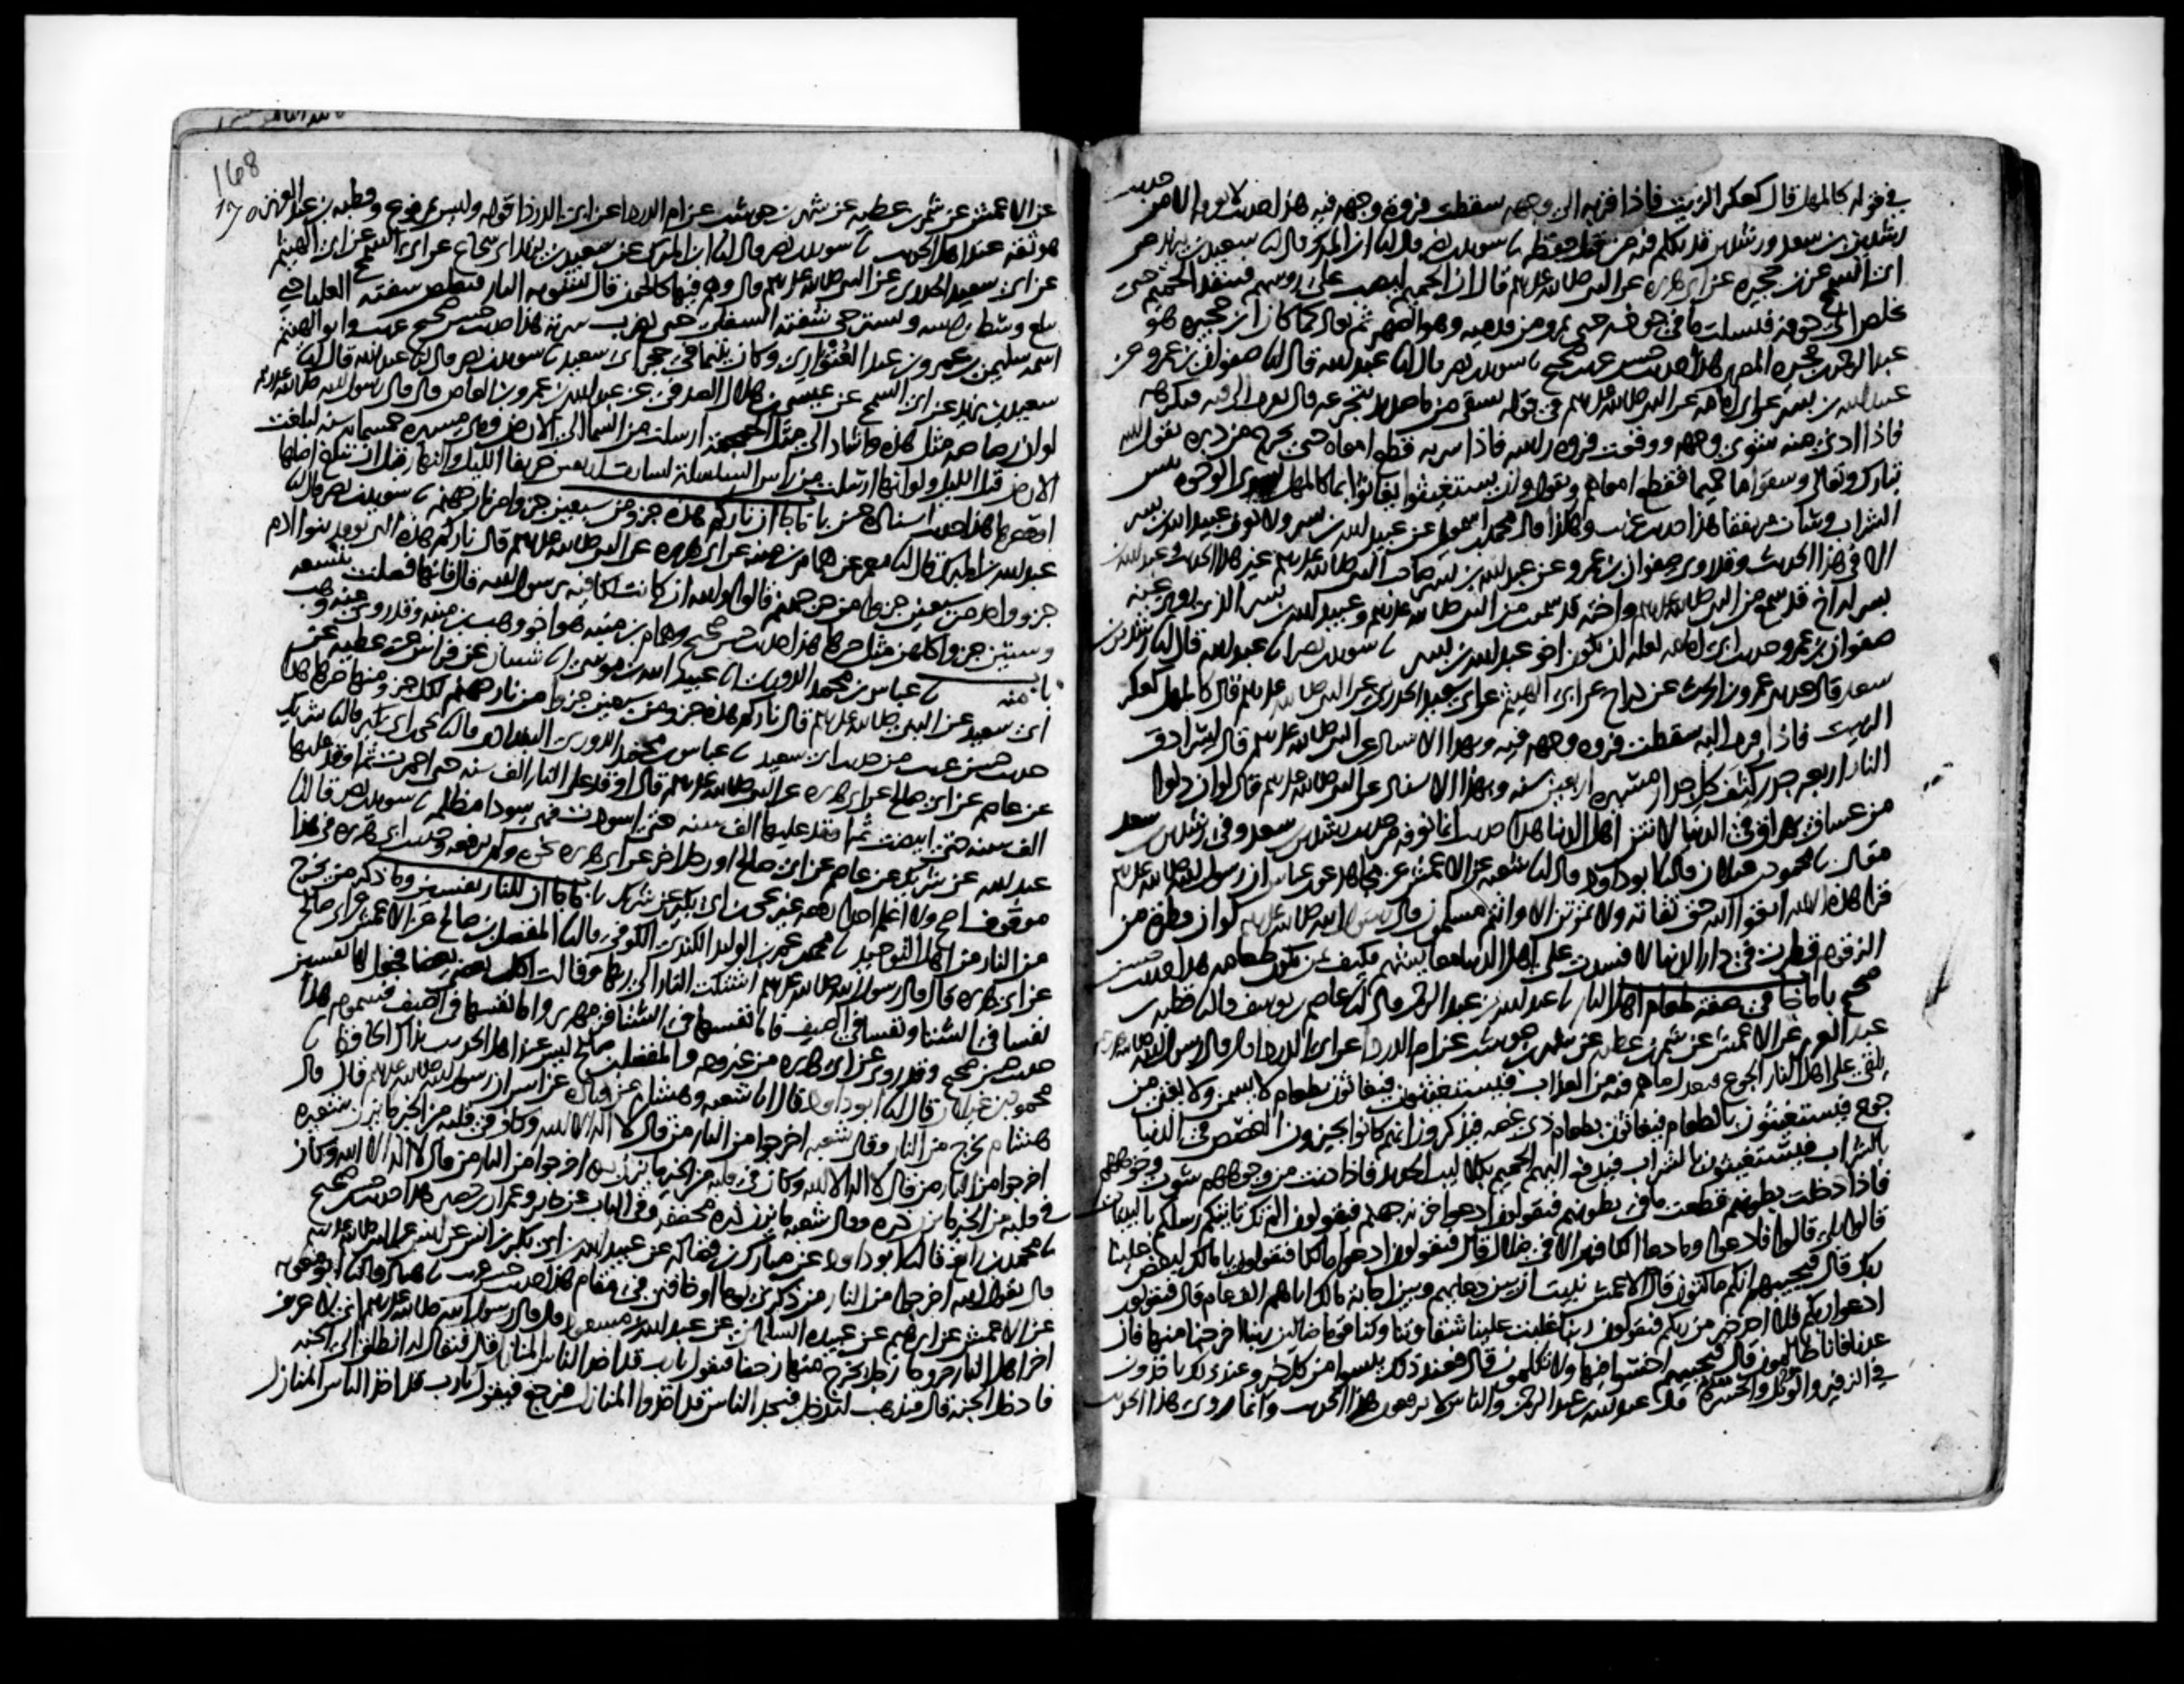 في قوله كالمهل قال كعكر الزيت فاذا قربه الى وجهه سقطت فروة وجهه فيه هذا حديث لا نعرفه الا من حديث
رشدين بن سعد ورشدين قد تكلم فيه من قبل حفظه نا سويد بن نصر قال انا ابن المبرك قال انا سعيد بن يزيد عن
ابي السمح عن ابن حجيرة عن ابي هريرة عن النبي صلى الله عليه وسلم قال ان الحميم ليصب على روسهم فينفذ الحميم حتى
يخلص الى جوفه فيسلت ما في جوفه حتى يمرق من قدميه وهو الصهر ثم يعاد كما كان ابن حجيرة هو
عبد الرحمن بن حجيرة المصري هذا حديث حسن غريب صحيح نا سويد بن نصر قال انا عبد الله قال انا صفوان بن عمرو عن
عبيد الله بن بسر عن ابي امامه عن النبي صلى الله عليه وسلم في قوله يسقى من ماء صديد يتجرعه قال يقرب الى فيه فيكرهه
فاذا ادني منه شوى وجهه ووقعت فروة راسه فاذا شربه قطع امعاه حتى يخرج من دبره يقول الله
تبارك وتعالى وسقوا ماء حميما فقطع امعاهم ويقول وان يستغيثوا يغاثوا بماء كالمهل يشوي الوجوه بئس
الشراب وساءت مرتفقا هذا حديث غريب وهكذا قال محمد بن اسمعيل عن عبيد الله بن بسر ولا نعرف عبيد الله بن بسر
الا في هذا الحديث وقد روى صفوان بن عمرو عن عبد الله بن بسر صاحب النبي صلى الله عليه وسلم غير هذا الحديث وعبد الله بن
بسر له اخ قد سمع من النبي صلى الله عليه وسلم واخته قد سمعت من النبي صلى الله عليه وسلم وعبيد الله بن بسر الذي روى عنه
صفوان بن عمرو حديث ابي امامه لعله ان يكون اخو عبد الله بن بسر نا سويد بن نصر انا عبد الله قال انا رشدين بن
سعد قال حدثني عمرو بن الحرث عن دراج عن ابي الهيثم عن ابي سعيد الخدري عن النبي صلى الله عليه وسلم قال كالمهل كعكر
الزيت فاذا قرب اليه سقطت فروة وجهه فيه وبهذا الاسناد عن النبي صلى الله عليه وسلم قال لسرادق
النار اربعة جدر كثف كل جدار مسيرة اربعين سنه وبهذا الاسناد عن النبي صلى الله عليه وسلم قال لو ان دلوا
من غساق يهراق في الدنيا لانتن اهل الدنيا هذا حديث انما نعرفه من حديث رشدين بن سعد وفي رشدين بن سعد
مقال نا محمود بن غيلان قال نا ابو داود قال انا شعبه عن الاعمش عن مجاهد عن ابن عباس ان رسول الله صلى الله عليه وسلم
قرا هذه الايه اتقوا الله حق تقاته ولا تموتن الا وانتم مسلمون قال رسول الله صلى الله عليه وسلم لو ان قطرة من
الزقوم قطرت في دار الدنيا لافسدت على اهل الدنيا معايشهم فكيف بمن يكون طعامه هذا حديث حسن
صحيح باب ما جا في صفة طعام اهل النار نا عبد الله بن عبد الرحمن قال انا عاصم بن يوسف قال نا قطبه بن
عبد العزيز عن الاعمش عن شمر بن عطيه عن شهر بن حوشب عن ام الدردا عن ابي الدردا قال قال رسول الله صلى الله عليه وسلم
يلقى على اهل النار الجوع فيعدل ما هم فيه من العذاب فيستغيثون فيغاثون بطعام لا يسمن ولا يغني من
جوع فيستغيثون بالطعام فيغاثون بطعام ذي غصه فيذكرون انهم كانوا يجيزون الغصص في الدنيا
بالشراب فيستغيثون بالشراب فيدفع اليهم الحميم بكلاليب الحديد فاذا دنت من وجوههم شوت وجوههم
فاذا دخلت بطونهم قطعت ما في بطونهم فيقولون ادعوا خزنة جهنم فيقولون الم تك تاتيكم رسلكم بالبينات
قالوا بلى قالوا فادعوا وما دعا الكافرين الا في ضلال قال فيقولون ادعوا مالكا فيقولون يا مالك ليقض علينا
ربك قال فيجيبهم انكم ماكثون قال الاعمش نبئت ان بين دعايهم وبين اجابة مالك اياهم الف عام قال فيقولون
ادعوا ربكم فلا احد خير من ربكم فيقولون ربنا غلبت علينا شقاوتنا وكنا قوما ضالين ربنا اخرجنا منها فان
عدنا فانا ظالمون قال فيجيبهم اخسئوا فيها ولا تكلمون قال فعند ذلك يئسوا من كل خير وعند ذلك ياخذون
في الزفير والويل والحسرة قال عبد الله بن عبد الرحمن والناس لا يرفعون هذا الحديث وانما روي هذا الحديث
168
170
عن الاعمش عن شمر بن عطيه عن شهر بن حوشب عن ام الدردا عن ابي الدردا قوله وليس بمرفوع وقطبه بن عبد العزيز
هو ثقه عند اهل الحديث نا سويد بن نصر قال انا ابن المبرك عن سعيد بن يزيد ابي شجاع عن ابي السمح عن ابي الهيثم
عن ابي سعيد الخدري عن النبي صلى الله عليه وسلم قال وهم فيها كالحون قال تشويه النار فتقلص شفته العليا حتى
تبلغ وسط راسه وتسترخي شفته السفلى حتى تضرب سرته هذا حديث حسن صحيح غريب وابو الهيثم
اسمه سليمن بن عمرو بن عبد العتواري وكان يتيما في حجر ابي سعيد نا سويد بن نصر قال انا عبد الله قال انا
سعيد بن يزيد عن ابي السمح عن عيسى بن هلال الصدفي عن عبد الله بن عمرو بن العاص قال قال رسول الله صلى الله عليه وسلم
لو ان رصاصه مثل هذه واشار الى مثل الجمجمة ارسلت من السما الى الارض وهي مسيرة خمسمايه سنه لبلغت
الارض قبل الليل ولو انها ارسلت من راس السلسلة لسارت اربعين خريفا الليل والنهار قبل ان تبلغ اصلها
او قعرها هذا حديث اسناده حسن باب ما جا ان ناركم هذه جزو من سبعين جزا من نار جهنم نا سويد بن نصر قال انا
عبد الله بن المبرك قال انا معمر عن همام بن منبه عن ابي هريرة عن النبي صلى الله عليه وسلم قال ناركم هذه التي يوقد بنوا ادم
جزو واحد من سبعين جزا من حر جهنم قالوا والله ان كانت لكافيه يا رسول الله قال فانها فضلت بتسعه
وستين جزوا كلهن مثل حرها هذا حديث حسن صحيح وهمام بن منبه هو اخو وهب بن منبه وقد روى عنه وهب
باب منه نا عباس بن محمد الدوري نا عبيد الله بن موسى انا شيبان عن فراس عن عطيه عن
ابي سعيد عن النبي صلى الله عليه وسلم قال ناركم هذه جزو من سبعين جزا من نار جهنم لكل جزو منها حرها هذا
حديث حسن غريب من حديث ابي سعيد نا عباس بن محمد الدوري البغدادي قال نا يحيى بن ابي بكير قال نا شريك
عن عاصم عن ابي صالح عن ابي هريرة عن النبي صلى الله عليه وسلم قال اوقد على النار الف سنه حتى احمرت ثم اوقد عليها
الف سنه حتى ابيضت ثم اوقد عليها الف سنه حتى اسودت فهي سودا مظلمه نا سويد بن نصر قال انا
عبد الله عن شريك عن عاصم عن ابي صالح او رجل اخر عن ابي هريرة نحوه ولم يرفعه وحديث ابي هريرة في هذا
موقوف اصح ولا اعلم احدا رفعه غير يحيى بن ابي بكير عن شريك باب ما جا ان للنار نفسين وما ذكر من يخرج
من النار من اهل التوحيد نا محمد بن عمر بن الوليد الكندي الكوفي قال نا المفضل بن صالح عن الاعمش عن ابي صالح
عن ابي هريرة قال قال رسول الله صلى الله عليه وسلم اشتكت النار الى ربها وقالت اكل بعضي بعضا فجعل لها نفسين
نفسا في الشتا ونفسا في الصيف فاما نفسها في الشتا فزمهرير واما نفسها في الصيف فسموم هذا
حديث حسن صحيح وقد روي عن ابي هريرة من غير وجه والمفضل بن صالح ليس عند اهل الحديث بذاك الحافظ نا
محمود بن غيلان قال نا ابو داود قال انا شعبه وهشام عن قتاده عن انس ان رسول الله صلى الله عليه وسلم قال قال
هشام يخرج من النار وقال شعبه اخرجوا من النار من قال لا اله الا الله وكان في قلبه من الخير ما يزن شعيره
اخرجوا من النار من قال لا اله الا الله وكان في قلبه من الخير ما يزن بره اخرجوا من النار من قال لا اله الا الله وكان
في قلبه من الخير ما يزن ذره وقال شعبه ما يزن ذره مخففه وفي الباب عن جابر وعمران بن حصين هذا حديث حسن صحيح
نا محمد بن رافع قال نا ابو داود عن مبارك بن فضاله عن عبيد الله بن ابي بكر بن انس عن انس عن النبي صلى الله عليه وسلم
قال يقول الله اخرجوا من النار من ذكرني يوما او خافني في مقام هذا حديث حسن غريب نا هناد قال نا ابو معويه
عن الاعمش عن ابرهيم عن عبيده السلماني عن عبد الله بن مسعود قال قال رسول الله صلى الله عليه وسلم اني لاعرف
اخر اهل النار خروجا رجل يخرج منها زحفا فيقول يا رب قد اخذ الناس المنازل قال فيقال له انطلق الى الجنه
فادخل الجنه قال فيذهب ليدخل فيجد الناس قد اخذوا المنازل فيرجع فيقول يا رب قد اخذ الناس المنازل